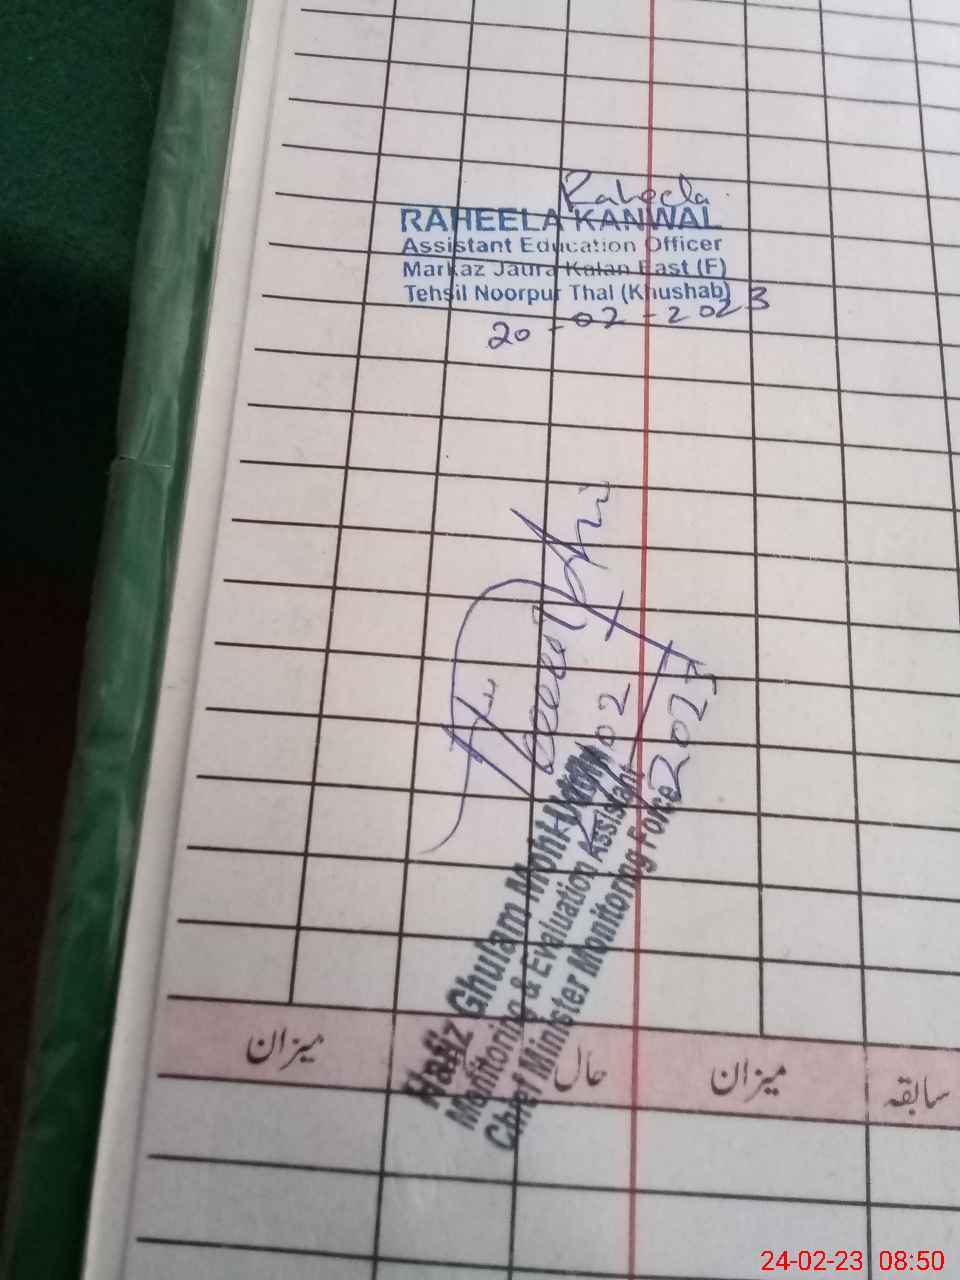 Raheela
RAHEELA KANWAL
Assistant Education Officer
Markaz Jaura Kalan East (F)
Tehsil Noorpur Thal (Khushab)
20-02-2023
02
2023
Hafiz Ghulam
Monitoring & Evaluation Assistant
Chief Minister Monitoring Force
میزان
حال
میزان
سابقہ
24-02-23 08:50